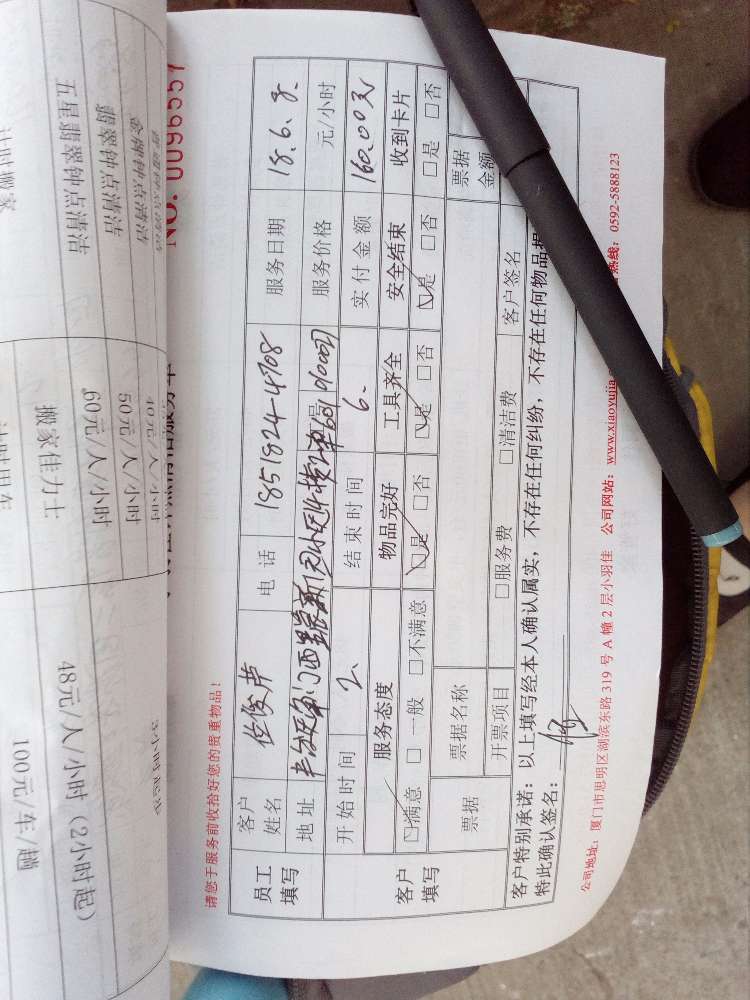 NO. 0096557
请您于服务前收拾好您的贵重物品！
员工填写 客户姓名 任俊芦 电话 1851824-4708 服务日期 18.6.8.
地址 服务价格 元/小时
开始时间 2. 结束时间 6. 实付金额 160.00元
客户填写 服务态度 物品完好 工具齐全 安全结束 收到卡片
☑满意 □一般 □不满意 ☑是 □否 ☑是 □否 ☑是 □否 □是 □否
票据 票据名称 票据金额
开票项目 □服务费 □清洁费 客户签名
客户特别承诺：以上填写经本人确认属实，不存在任何纠纷，不存在任何物品损
特此确认签名：
公司地址：厦门市思明区湖滨东路 319 号 A 幢 2 层小羽佳 公司网站：www.xiaoyujia. 热线：0592-5888123
40元/人/小时
金牌钟点清洁 50元/人/小时
翡翠钟点清洁 60元/人/小时
五星翡翠钟点清洁
搬家佳力士 48元/人/小时（2小时起）
100元/车/趟
3小时起步